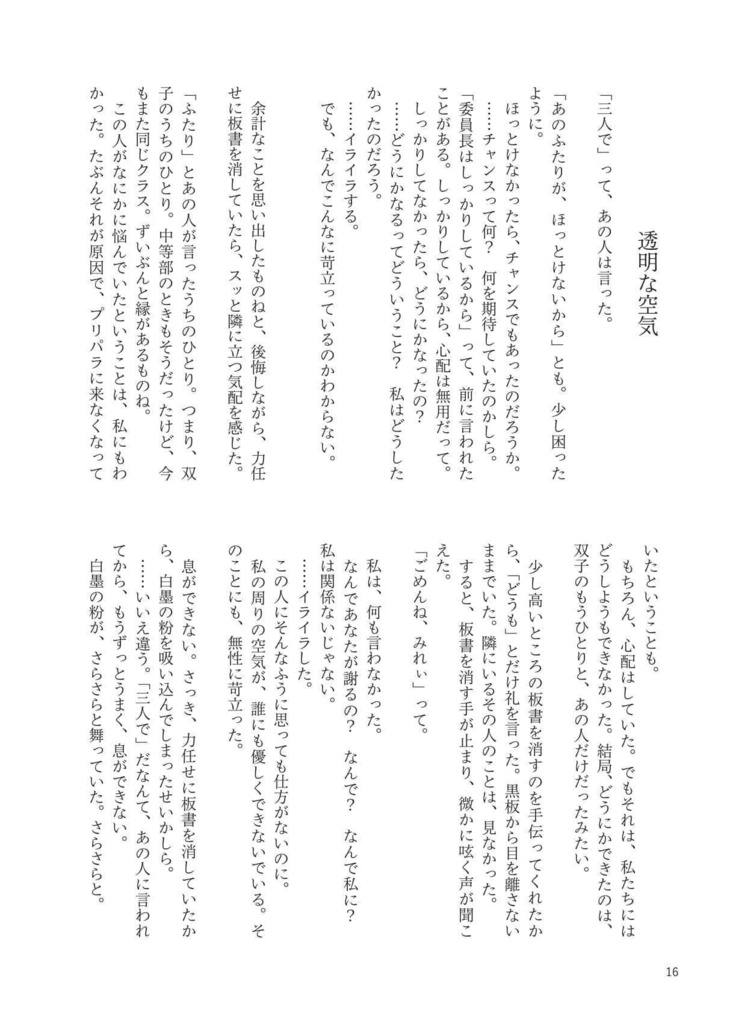 透明な空気
「三人で」って、あの人は言った。
「あのふたりが、ほっとけないから」とも。少し困った
ように。
ほっとけなかったら、チャンスでもあったのだろうか。
……チャンスって何?　何を期待していたのかしら。
「委員長はしっかりしているから」って、前に言われた
ことがある。しっかりしているから、心配は無用だって。
しっかりしてなかったら、どうにかなったの?
……どうにかなるってどういうこと?　私はどうした
かったのだろう。
……イライラする。
でも、なんでこんなに苛立っているのかわからない。
余計なことを思い出したものねと、後悔しながら、力任
せに板書を消していたら、スッと隣に立つ気配を感じた。
「ふたり」とあの人が言ったうちのひとり。つまり、双
子のうちのひとり。中等部のときもそうだったけど、今
もまた同じクラス。ずいぶんと縁があるものね。
この人がなにかに悩んでいたということは、私にもわ
かった。たぶんそれが原因で、プリパラに来なくなって
いたということも。
もちろん、心配はしていた。でもそれは、私たちには
どうしようもできなかった。結局、どうにかできたのは、
双子のもうひとりと、あの人だけだったみたい。
少し高いところの板書を消すのを手伝ってくれたか
ら、「どうも」とだけ礼を言った。黒板から目を離さない
ままでいた。隣にいるその人のことは、見なかった。
すると、板書を消す手が止まり、微かに呟く声が聞こ
えた。
「ごめんね、みれぃ」って。
私は、何も言わなかった。
なんであなたが謝るの?　なんで?　なんで私に?
私は関係ないじゃない。
……イライラした。
この人にそんなふうに思っても仕方がないのに。
私の周りの空気が、誰にも優しくできないでいる。そ
のことにも、無性に苛立った。
息ができない。さっき、力任せに板書を消していたか
ら、白墨の粉を吸い込んでしまったせいかしら。
……いいえ違う。「三人で」だなんて、あの人に言われ
てから、もうずっとうまく、息ができない。
白墨の粉が、さらさらと舞っていた。さらさらと。
16